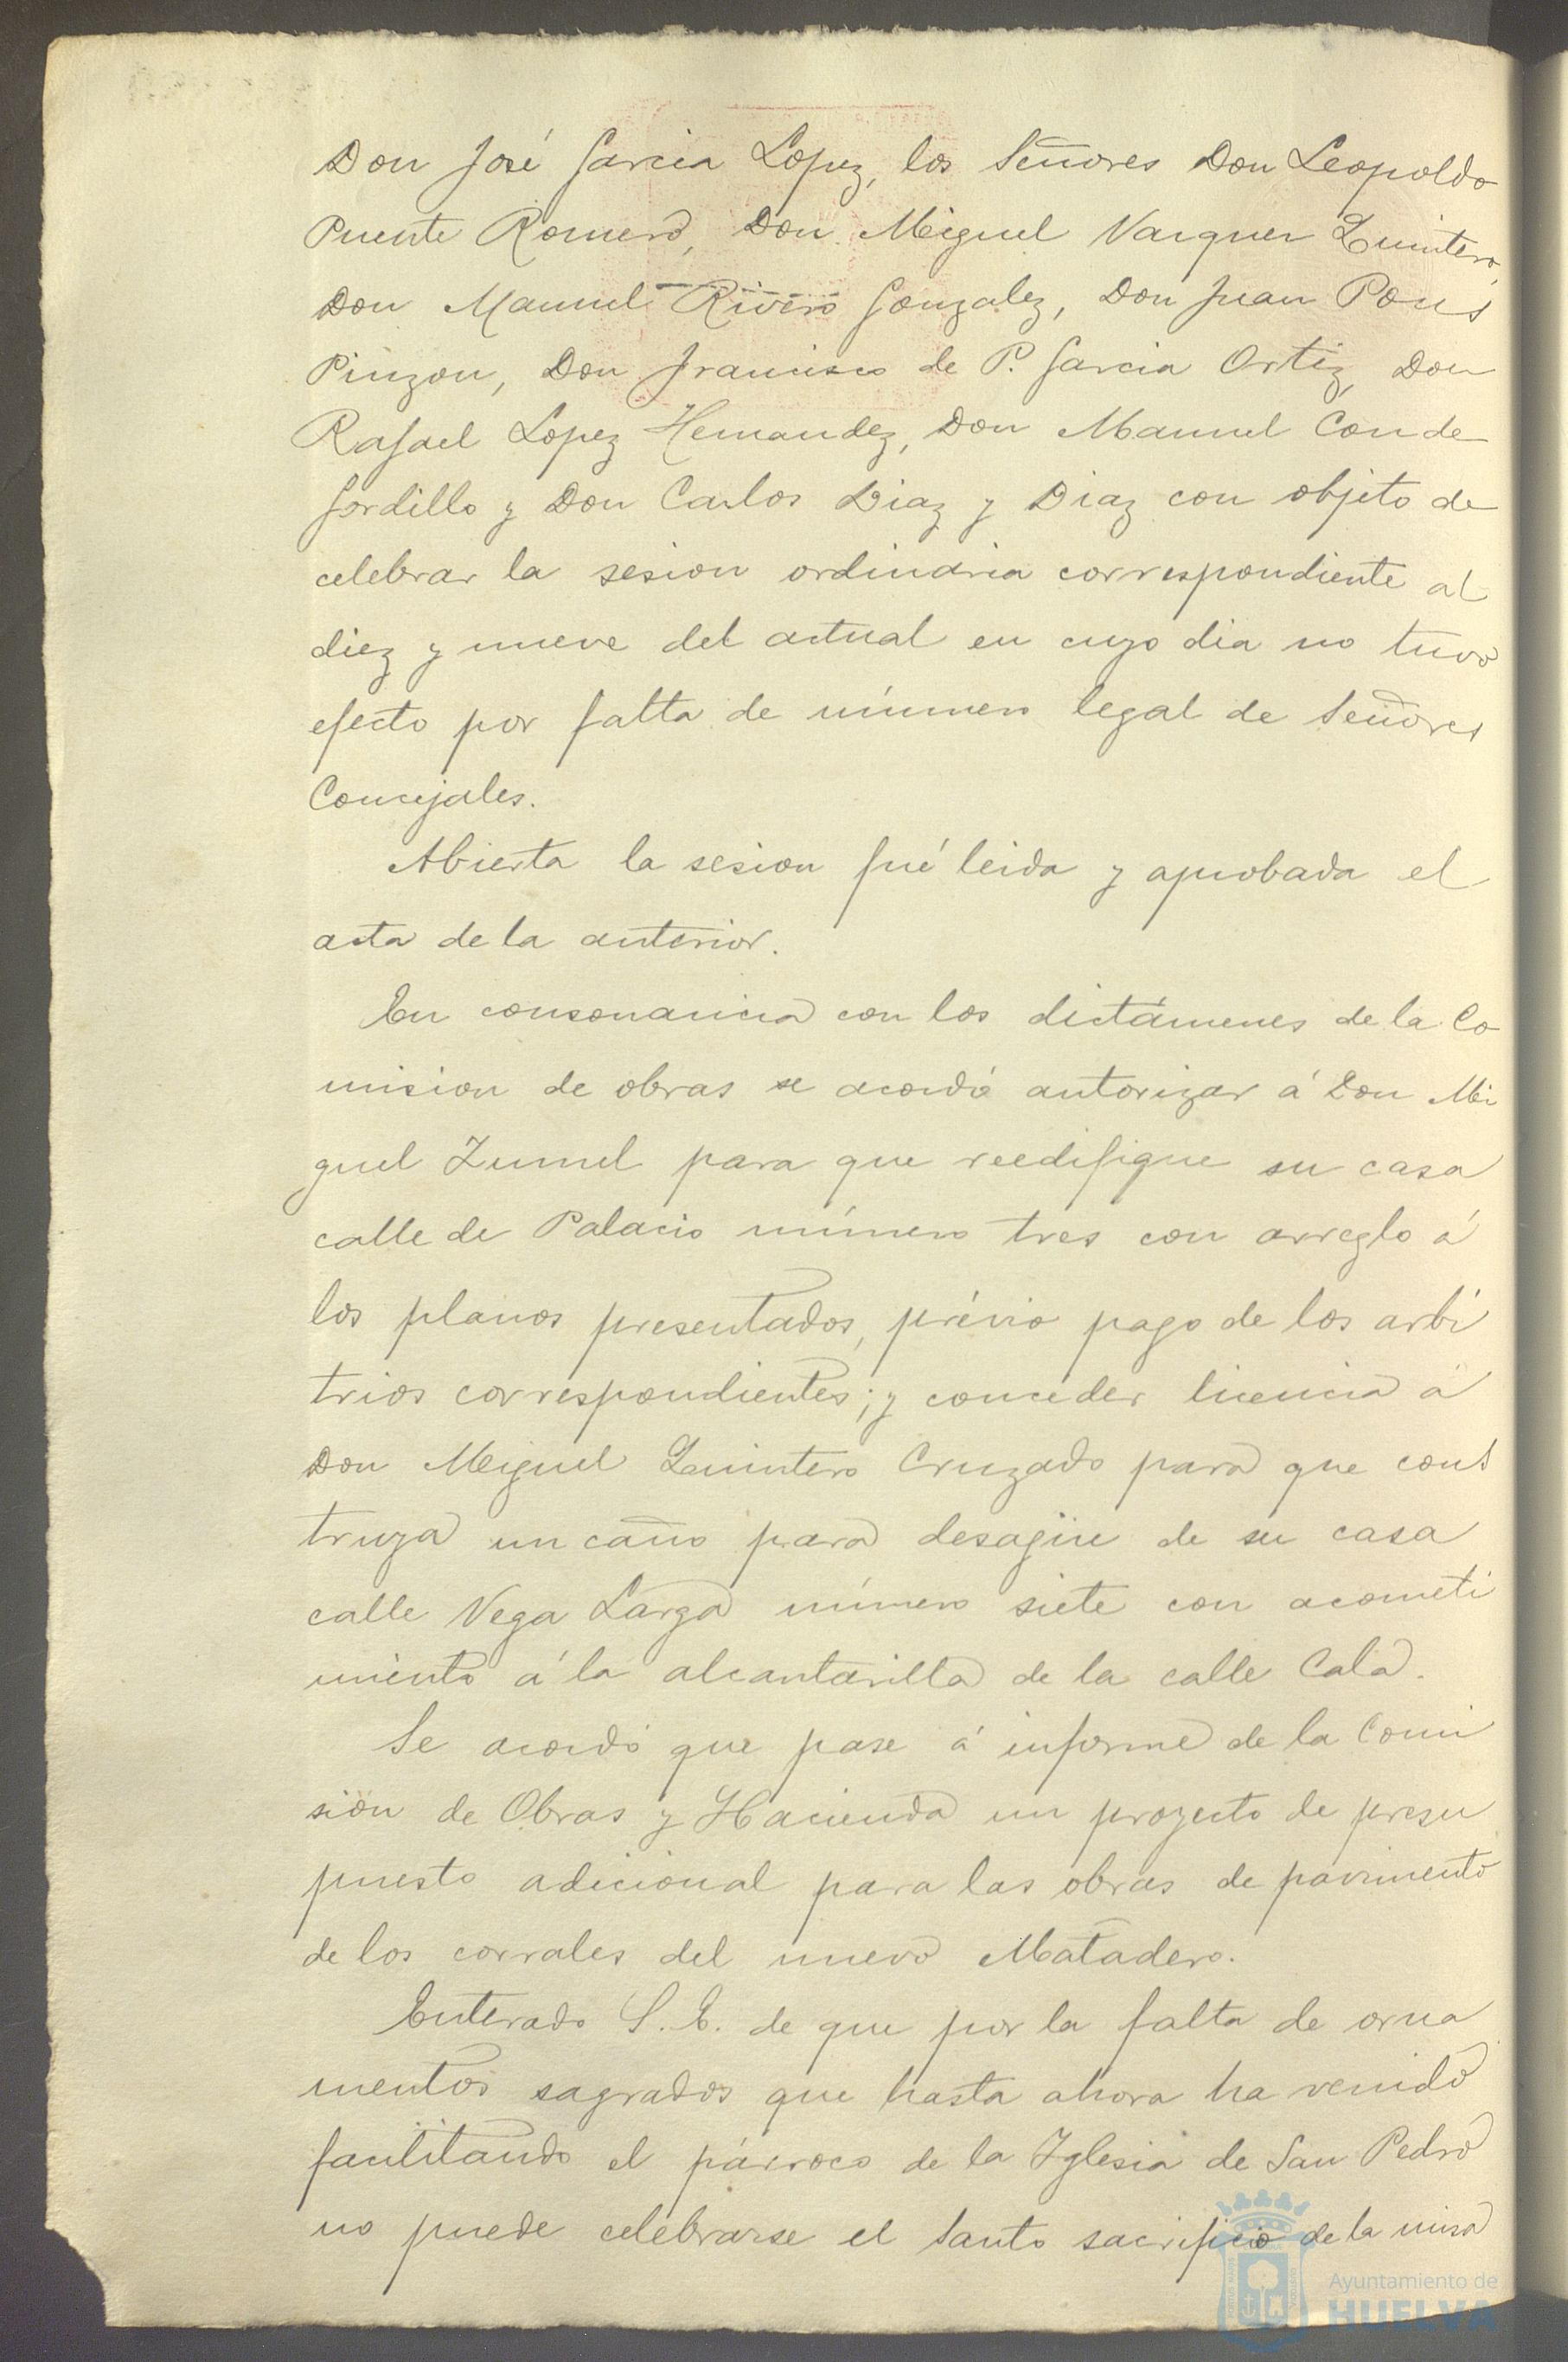 Don José Garcia Lopez, los Señores Don Leopoldo
Puente Romero, Don Miguel Vazquez Quintero
Don Manuel Rivero Gonzalez, Don Juan Pous
Pinzon, Don Francisco de P. Garcia Ortiz, Don
Rafael Lopez Hernandez, Don Manuel Conde
Gordillo y Don Carlos Diaz y Diaz con objeto de
celebrar la sesion ordinaria correspondiente al
diez y nueve del actual en cuyo dia no tuvo
efecto por falta de número legal de Señores
Concejales.
Abierta la sesion fué leida y aprobada el
acta de la anterior.
En consonancia con los dictámenes de la Co
mision de obras se acordó autorizar á Don Mi
guel Zumel para que reedifique su casa
calle de Palacio número tres con arreglo á
los planos presentados, prévio pago de los arbi
trios correspondientes; y conceder licencia á
Don Miguel Quintero Cruzado para que cons
truya un caño para desagüe de su casa
calle Vega Larga número siete con acometi
miento á la alcantarilla de la calle Cala.
Se acordó que pase á informe de la Comi
sión de Obras y Hacienda un proyecto de presu
puesto adicional para las obras de pavimento
de los corrales del nuevo Matadero.
Enterado S. E. de que por la falta de orna
mentos sagrados que hasta ahora ha venido
facilitando el párroco de la Iglesia de San Pedro
no puede celebrarse el Santo sacrificio de la misa
Ayuntamiento de
HUELVA